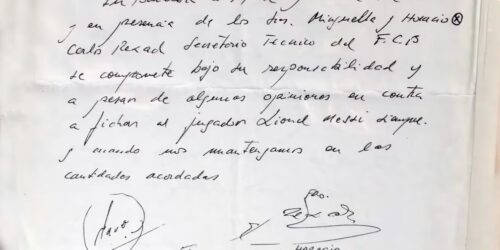 y en presencia de los Srs. Minguella y Horacio
Carlos Rexach Secretario Técnico del F.C.B
se compromete bajo su responsabilidad y
a pesar de algunas opiniones en contra
a fichar al jugador Lionel Messi siempre
y cuando nos mantengamos en las
cantidades acordadas
Horacio